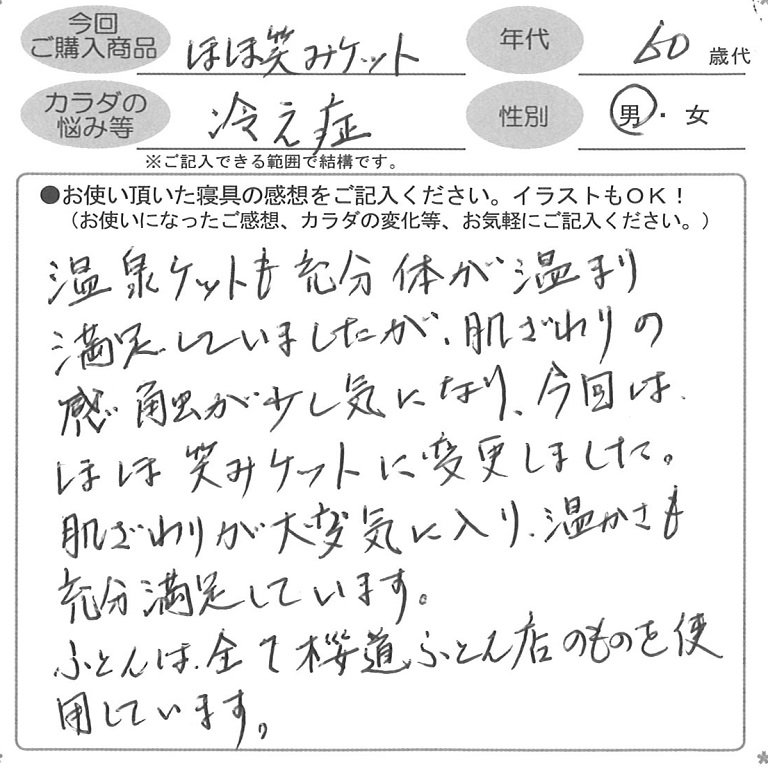 今回
ご購入商品 ほほ笑みケット 年代 60 歳代
カラダの
悩み等 冷え症 性別 男・女
※ご記入できる範囲で結構です。
●お使い頂いた寝具の感想をご記入ください。イラストもOK！
（お使いになったご感想、カラダの変化等、お気軽にご記入ください。）
温泉ケットも充分体が温まり
満足していましたが、肌ざわりの
感触が少し気になり、今回は、
ほほ笑みケットに変更しました。
肌ざわりが大変気に入り、温かさも
充分満足しています。
ふとんは、全て桜道ふとん店のものを使
用しています。